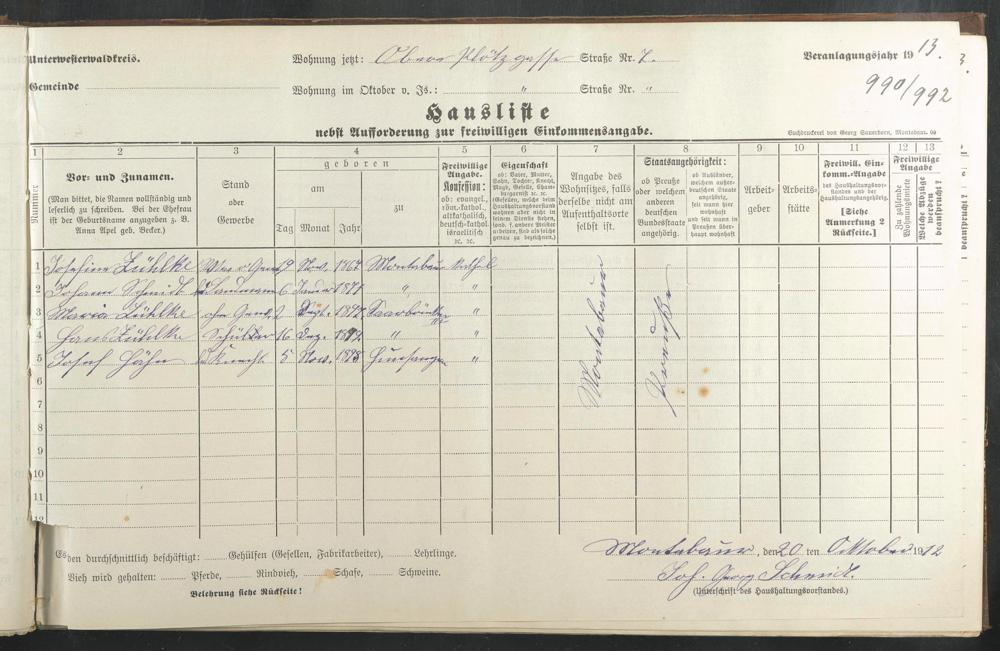 Unterwesterwaldkreis.
Wohnung jetzt: Obere Plötzgasse Straße Nr. 7.
Veranlagungsjahr 1913.
Gemeinde
Wohnung im Oktober v. Js.: " Straße Nr. "
990/992
Hausliste
nebst Aufforderung zur freiwilligen Einkommensangabe.
Buchdruckerei von Georg Sauerborn, Montabaur.
1 2 3 4 5 6 7 8 9 10 11 12 13
Nummer
Vor- und Zunamen.
(Man bittet, die Namen vollständig und
leserlich zu schreiben. Bei der Ehefrau
ist der Geburtsname anzugeben z. B.
Anna Apel geb. Becker.)
Stand
oder
Gewerbe
geboren
am
Tag Monat Jahr
zu
Freiwillige
Angabe.
Konfession:
ob: evangel.,
röm.-kathol.
altkatholisch,
deutsch-kathol.
israelitisch
ɾc. ɾc.
Eigenschaft
ob: Vater, Mutter,
Sohn, Tochter, Knecht,
Magd, Geselle, Cham-
bregarnist ɾc. ɾc.
Angabe des
Wohnsitzes, falls
derselbe nicht am
Aufenthaltsorte
selbst ist.
Staatsangehörigkeit:
ob Preuße
oder welchem
anderen
deutschen
Bundesstaate
angehörig.
ob Ausländer,
welchem außer-
deutschen Staate
angehörig,
seit wann hier
wohnhaft und
seit wann in
Preußen über-
haupt wohnhaft
Arbeit-
geber
Arbeits-
stätte
Freiwill. Ein-
komm.-Angabe
des Haushaltungsvor-
standes und der
Haushaltungsangehörig.
[Siehe
Anmerkung 2
Rückseite.]
Freiwillige
Angabe
Zu zahlende
Wohnungsmiete
Welche Abzüge
werden
beansprucht?
1 Josefine Zühlke 9 Nov. 1867 Montabaur Kathol
2 Johann Schmidt 6 Januar "  "
3 Maria Zühlke ohne Gew. 2 Saarbrücken "
4 Hans Zühlke Schüler 16 Dez. " "
5 Josef Hähn Knecht 5 Nov. 1898 "
Montabaur
Preuße
6
7
8
9
10
11
12
Es werden durchschnittlich beschäftigt: Gehülfen (Gesellen, Fabrikarbeiter), Lehrlinge.
Vieh wird gehalten: Pferde, Rindvieh, Schafe, Schweine.
Belehrung siehe Rückseite!
Montabaur, den 20 ten Oktober 1912
Joh. Georg Schmidt.
(Unterschrift des Haushaltungsvorstandes.)